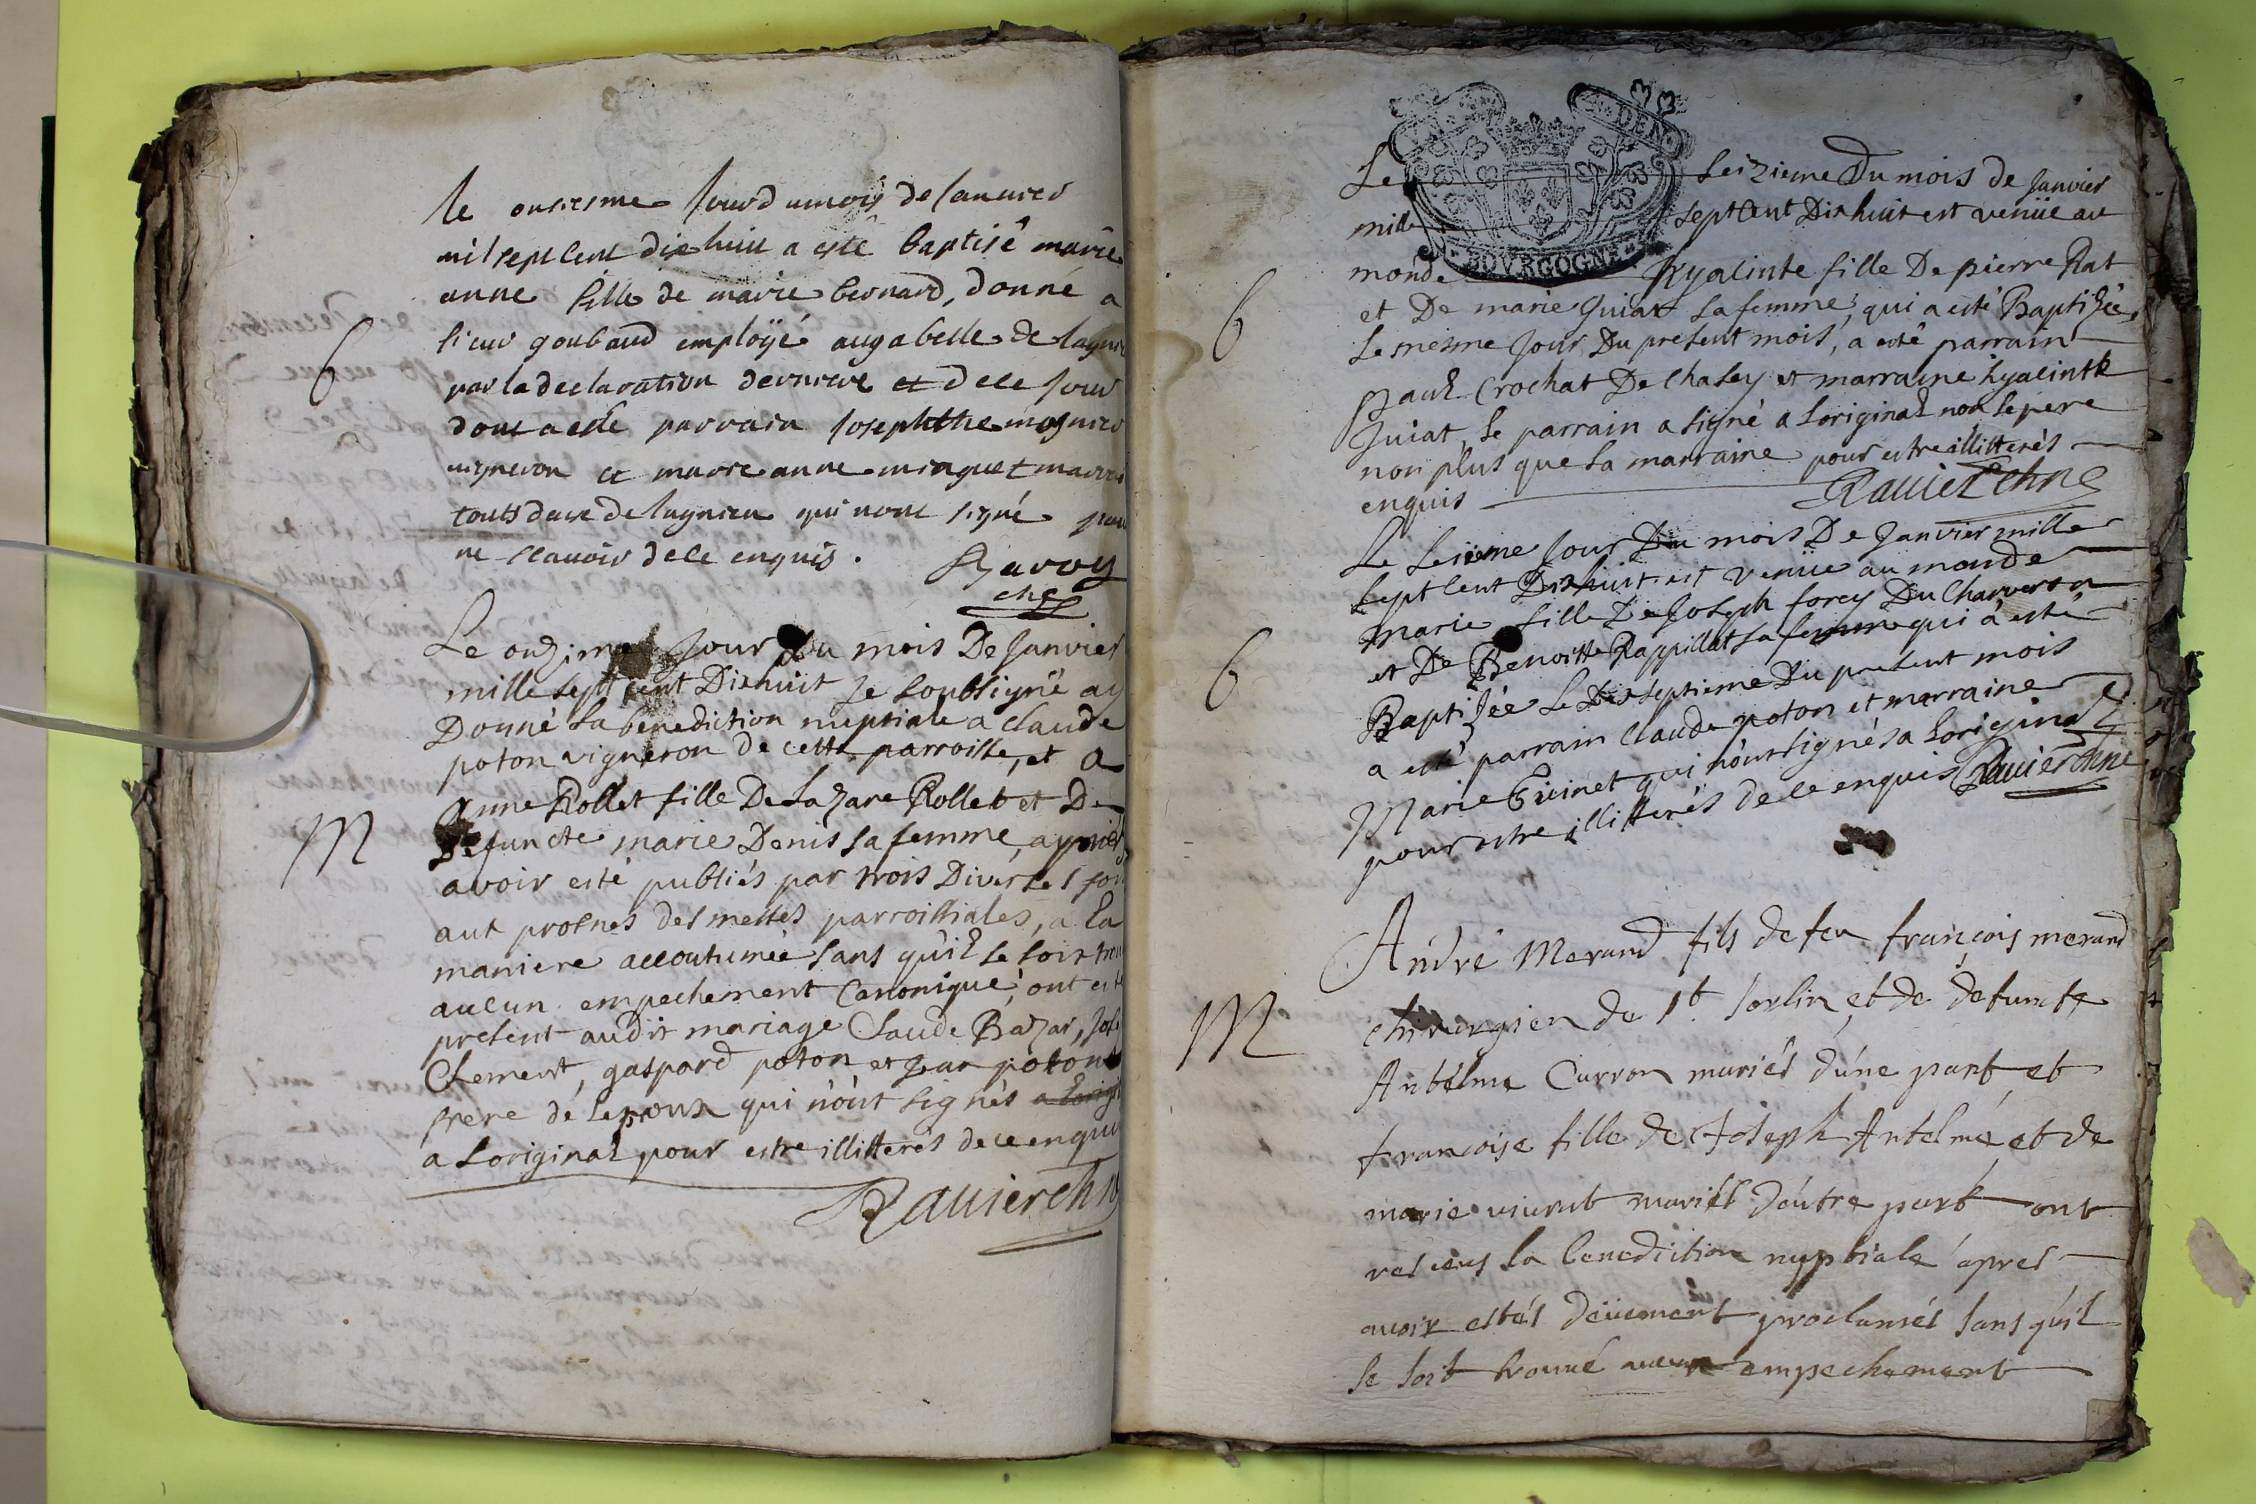 le onziesme jour du mois de janvier
mil sept cent dix huit a esté baptisé marie
anne fille de marie bernard, donné a
sieur goubaud employé au gabelle de lagnie
par la declaration derniere et de ce jour
dont a esté parrain joseph
vigneron et marie anne minguet marrai
touts deux de lagnieu qui nont signé pou
ne scavoir de ce enquis.
B
Le onzime jour du mois De Janvier
mille sept cent Dixhuit Je soubsigné ay
Donné La benediction nuptiale a claude
poton vigneron de cette parroisse, et a
Anne Rollet fille De Lazare Rollet et De
Defuncte marie Denis sa femme, apprès
avoir esté publiés par trois Diverses foi
aux prosnes des messes parroissiales, a La
maniere accoutumée sans qu'il se soit trou
aucun empechement canonique, ont esté
present audit mariage Claude Bazar, Jose
Clement, gaspard poton et Jean poton
frere de Lepoux qui n'ont signés
a Loriginal pour estre illitterés de ce enquis
M
Ravier chne
Le seizieme Du mois de Janvier
mille sept Cent Dixhuit est venüe au
monde Hyacinte fille De pierre Rat
et De marie Juiat sa femme, qui a esté Baptisée
Le mesme Jour Du present mois, a esté parrain
Paul Crochat De Chasey et marraine hyacinte
Juiat, Le parrain a signé a Loriginal non Le pere
non plus que La marraine pour estre illitterés
enquis Ravier Chne
B
Le seizieme Jour Du mois De Janvier mille
sept Cent Dixhuit est venüe au monde
marie fille De Joseph forey Du Charveron
et De Benoitte Rappillat sa femme qui a esté
Baptisée Le Dixseptieme Du present mois
a esté parrain Claude poton et marraine
Marie Guinet qui n'ont signés a Loriginal
pour estre illitterés de ce enquis Ravier Chne
B
André Merand fils de feu françois merand
chirurgien de St. Sorlin et de defuncte
Antelme Carron mariés d'une part et
francoise fille de Joseph Antelme et de
marie vivent mariés d'autre part ont
reseus la benediction nuptiale apres
avoir estés deüement proclamés sans qu'il
se soit trouvé aucun empechement
M